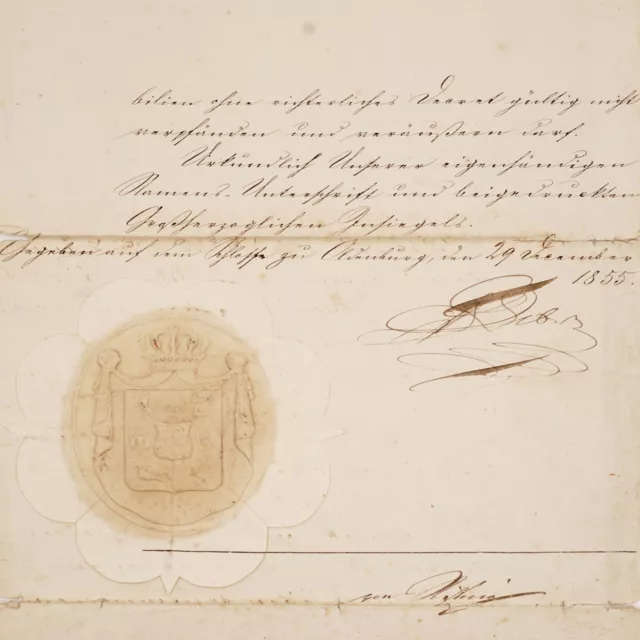 bilien ohne richterliches Decret gültig nicht
verpfänden und veräußern darf.
Urkundlich Unserer eigenhändigen
Namens-Unterschrift und beigedruckten
Großherzoglichen Insiegels.
Gegeben auf dem Schlosse zu Oldenburg, den 29 December
1855.
von